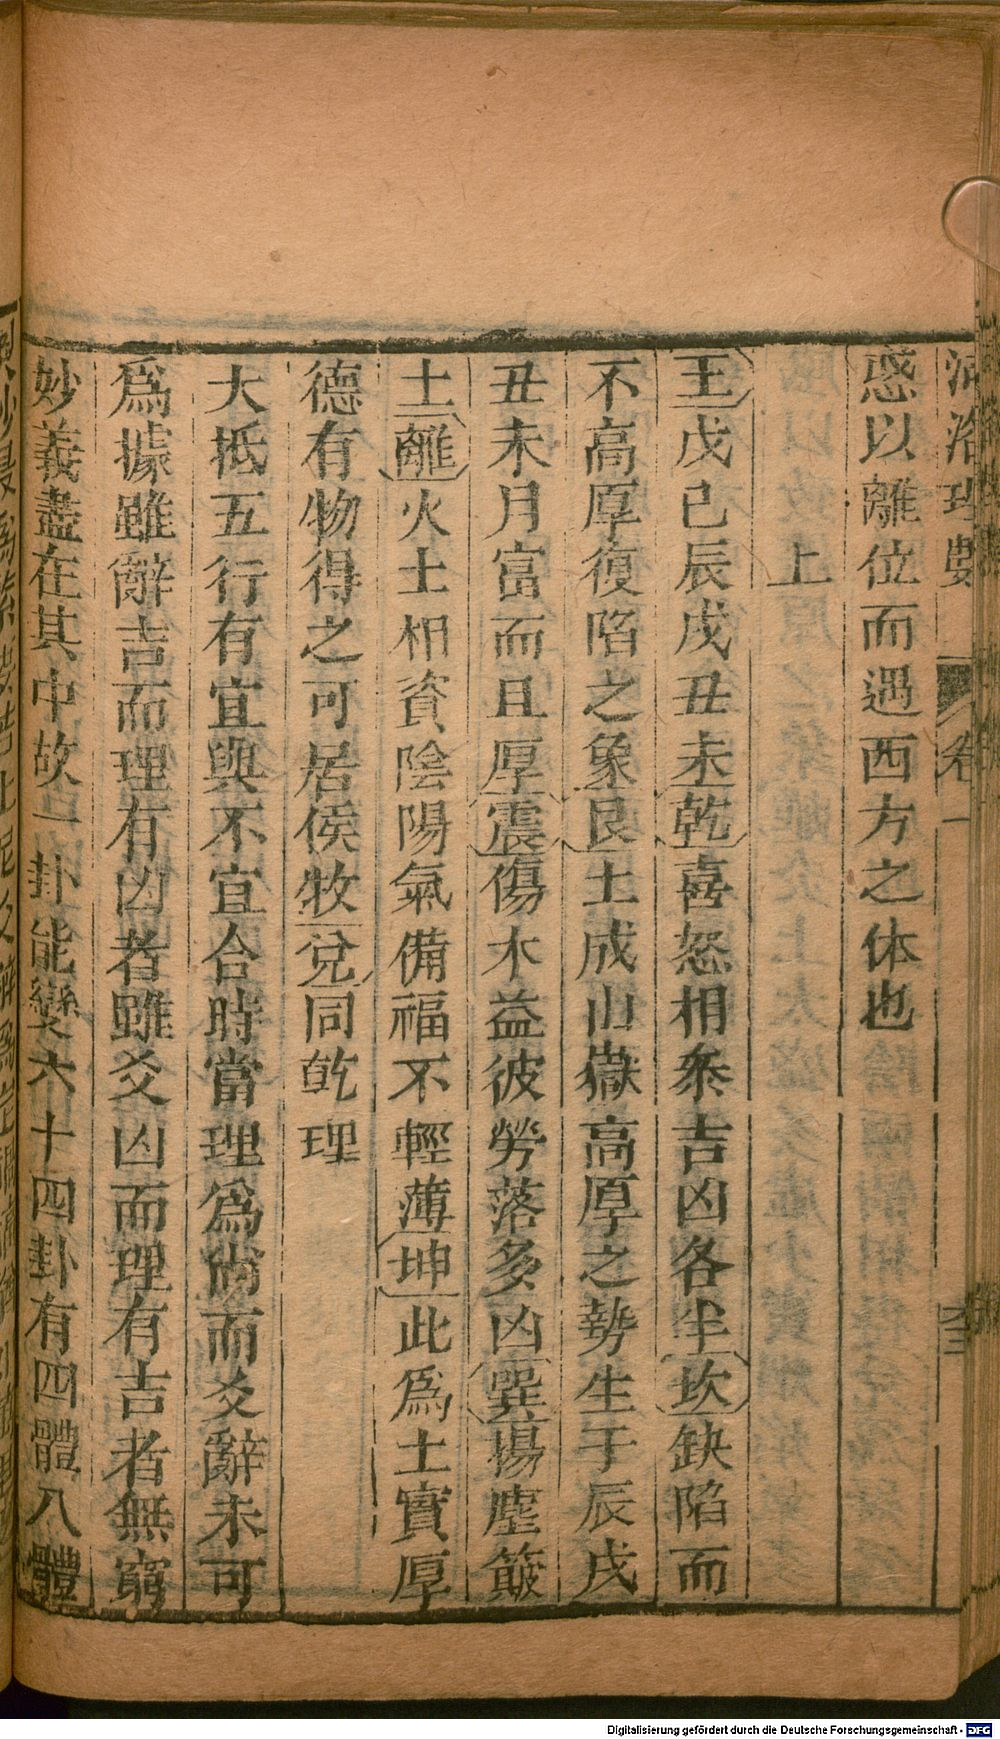 河洛理數 卷一
惑以離位而遇西方之体也
土
土戊己辰戌丑未乾喜怒相參吉凶各半坎缺陷而
不高厚復陷之象艮土成山嶽高厚之勢生于辰戌
丑未月富而且厚震傷木益彼勞落多凶巽揚塵簸
土離火土相資陰陽氣備福不輕薄坤此爲土實厚
德有物得之可居侯牧兌同乾理
大抵五行有宜與不宜合時當理爲尚而爻辭未可
爲據雖辭吉而理有凶者雖爻凶而理有吉者無窮
妙義盡在其中故一卦能變六十四卦有四體八體
Digitalisierung gefördert durch die Deutsche Forschungsgemeinschaft - DFG